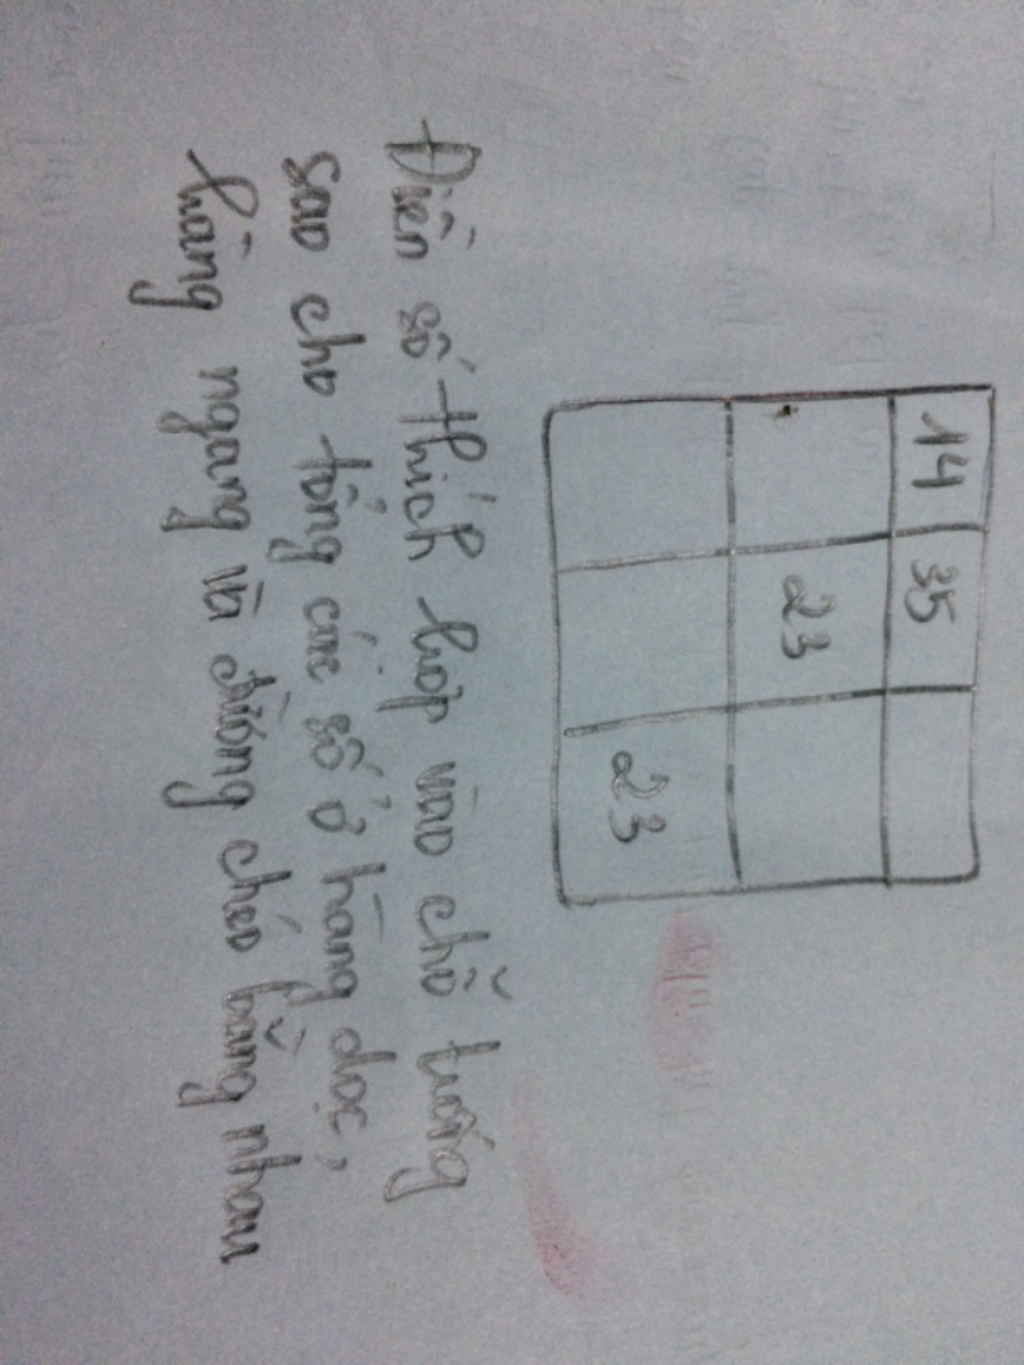 14 35
23
23
Điền số thích hợp vào chỗ trống
sao cho tổng các số ở hàng dọc,
hàng ngang và đường chéo bằng nhau